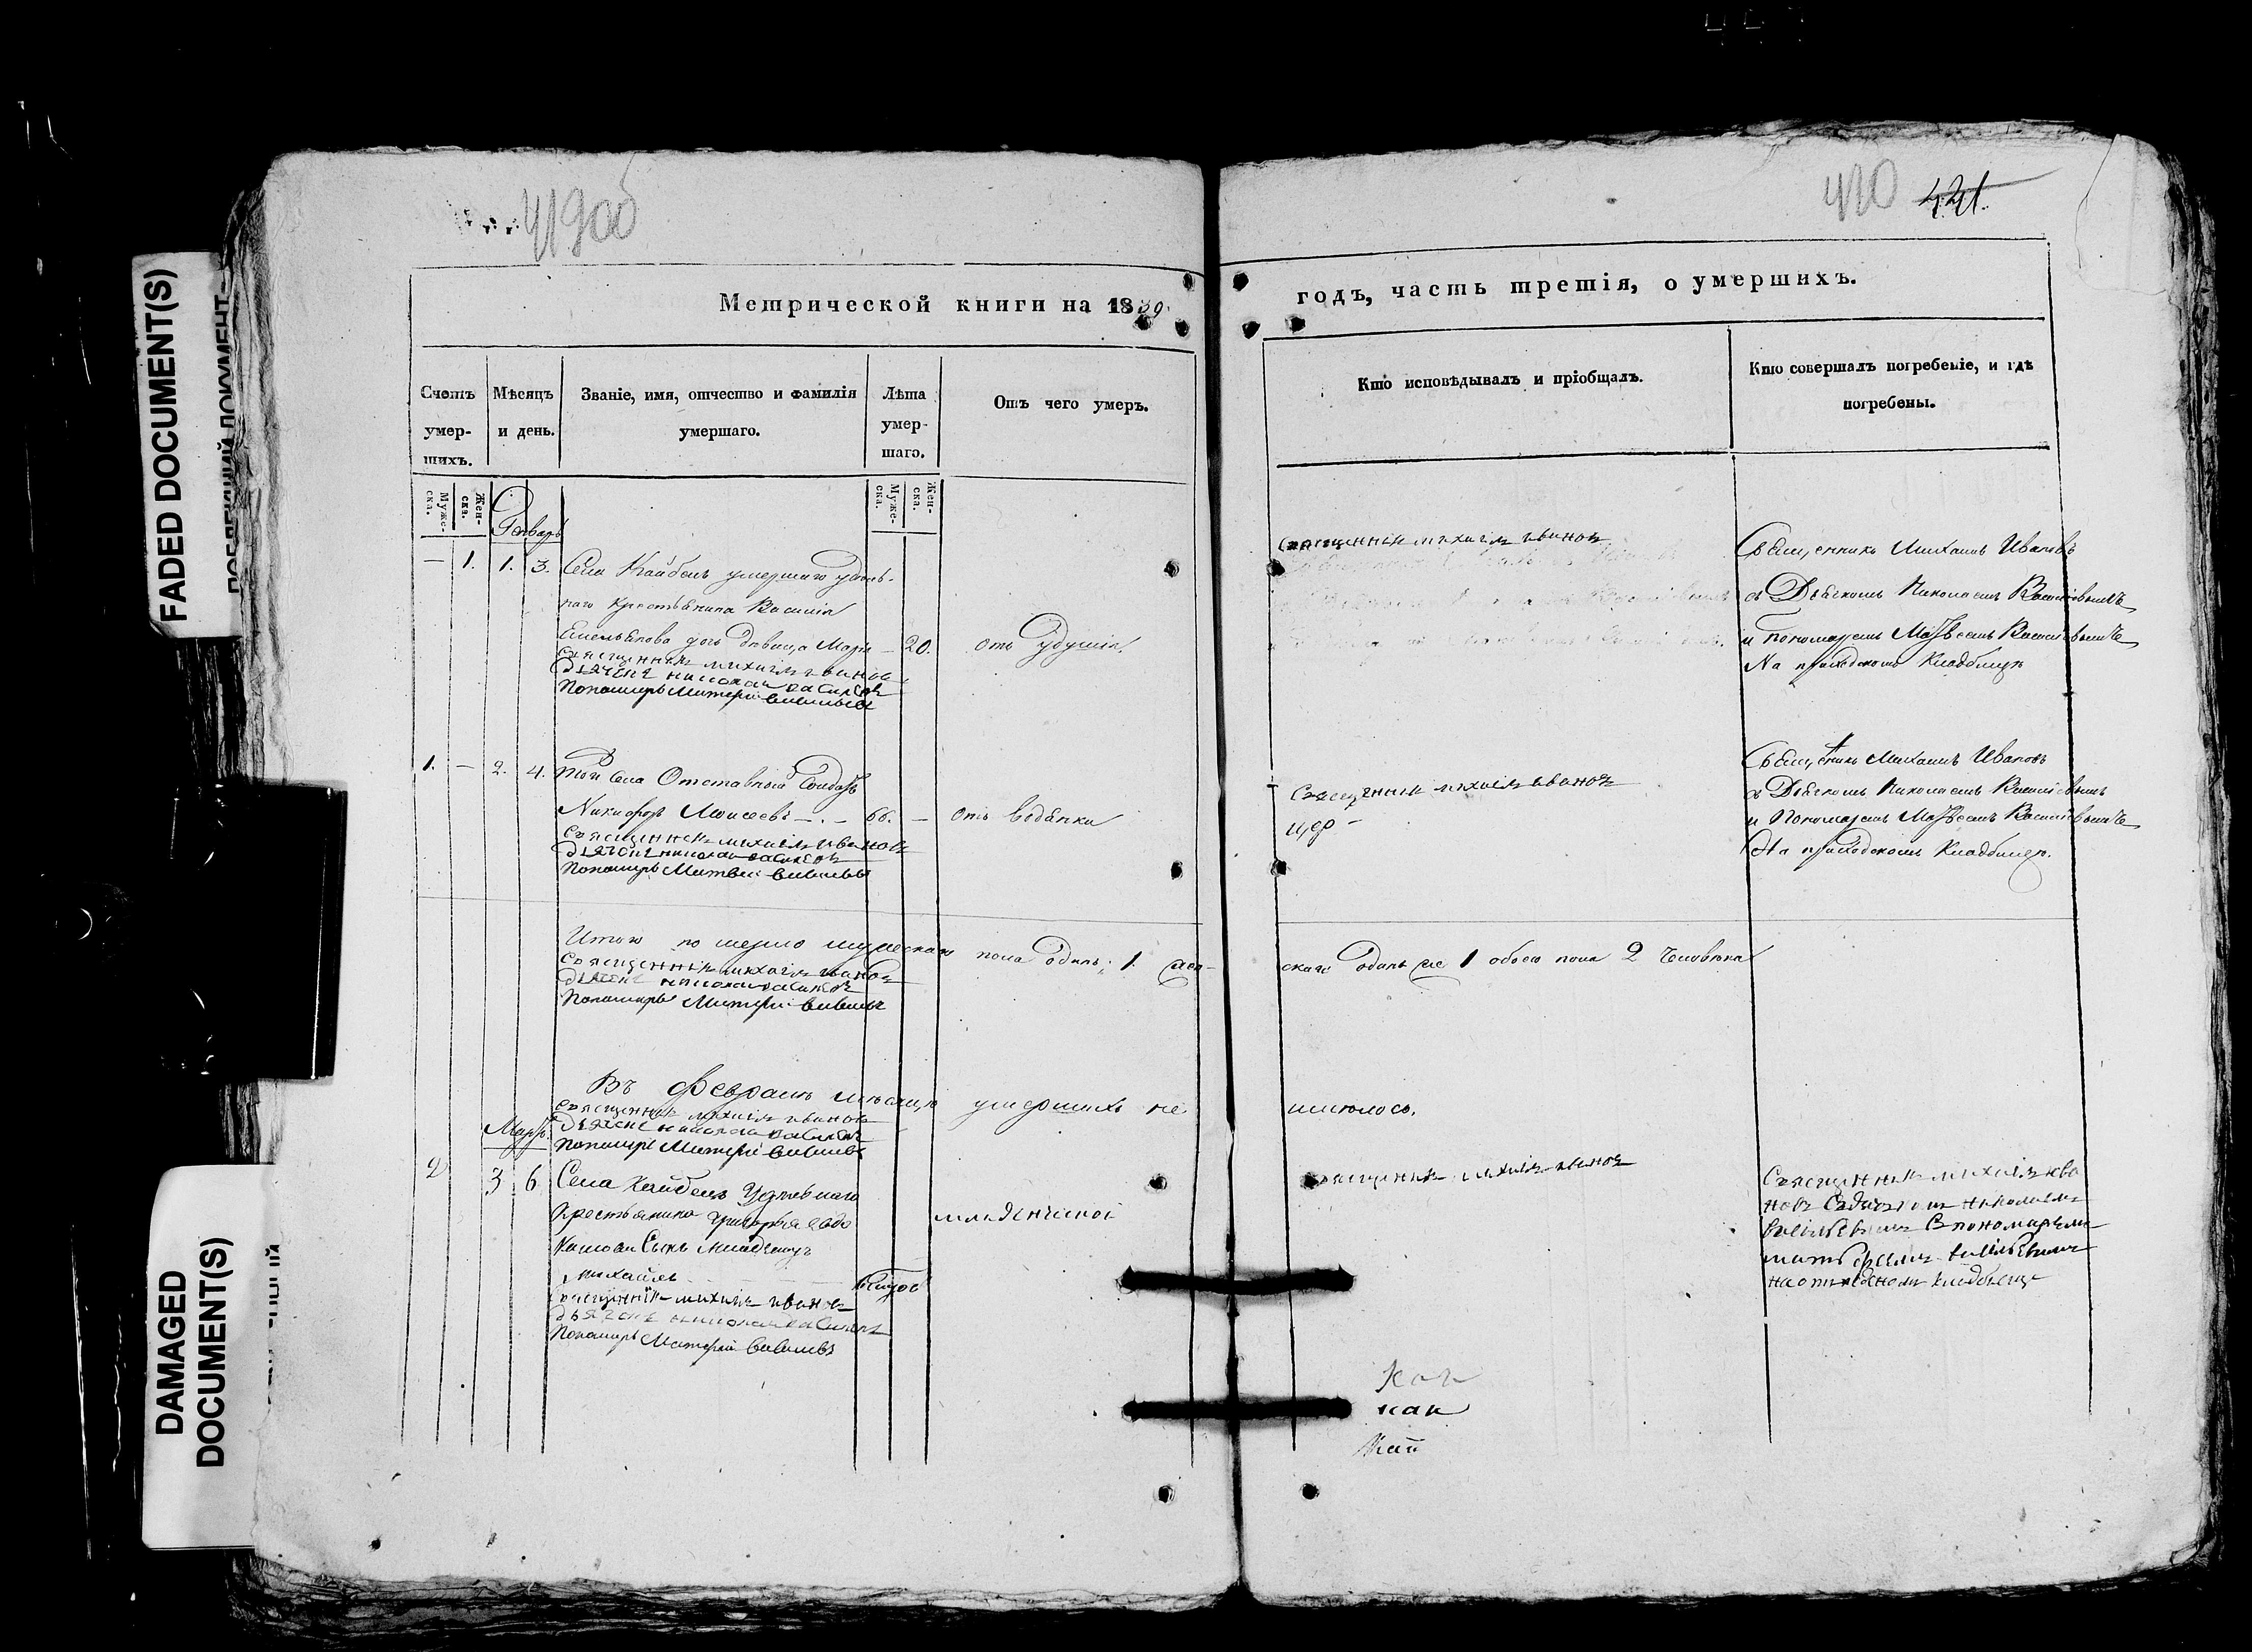 419 об
420 421.
Метрической книги на 1839
годъ, часть третія, о умершихъ.
Счетъ умер-шихъ.
Мѣсяцъ и день.
Званіе, имя, отчество и фамилія умершаго.
Лѣта умер-шаго.
Отъ чего умеръ.
Кто исповѣдывалъ и пріобщалъ.
Кто совершалъ погребеніе, и гдѣ погребены.
Муже-ска.
Жен-ска.
Муже-ска.
Жен-ска.
Генварь
— 1. 1. 3.
Села Кайбелъ умершаго удѣль-
наго крестьянина Василія
Емельянова дочь дѣвица Марья — 20. отъ удушія.
священникъ михаилъ ивановъ
дьячекъ николай васильевъ
Пономарь Матфей васильевъ
священникъ михаилъ ивановъ
Священникъ Михаилъ Ивановъ
съ Дьячкомъ Николаемъ Васильевымъ
и Пономаремъ Матвеемъ Васильевымъ
На приходскомъ Кладбищѣ
1. — 2. 4.
Той села Отставный Солдатъ
Никифоръ Моисеевъ —.— 66. — отъ водянки
священникъ михаилъ ивановъ
дьячекъ николай васильевъ
Пономарь Матвей васильевъ
священникъ михаилъ ивановъ
цер
Священникъ Михаилъ Ивановъ
съ Дьячкомъ Николаемъ Васильевымъ
и Пономаремъ Матвеемъ Васильевымъ
На приходскомъ Кладбищѣ.
Итого по мерло мужескаго пола одинъ: 1. жен-
скаго одинъ же 1 обоего пола 2 человѣка
священникъ михаилъ ивановъ
дьячекъ николай васильевъ
Пономарь Матфей васильевъ
Въ Февралѣ мѣсяцѣ умершихъ не
имѣлось.
священникъ михаилъ ивановъ
дьячекъ николай васильевъ
Пономарь Матфей васильевъ
Мартъ.
2 3 6
Села Кайбелъ Удѣльнаго
крестьянина Григорья
Сынъ младенецъ
михаилъ
младенческой
священникъ михаилъ ивановъ
дьячекъ николай васильевъ
Пономарь Матфей васильевъ
священникъ михаилъ ивановъ
Священникъ михаилъ ива
новъ Съ дьячкомъ николаемъ
васильевымъ С пономаремъ
матфеемъ васильевымъ
на отведеномъ кладбище
как
Кай
FADED DOCUMENT(S)
DAMAGED
DOCUMENT(S)